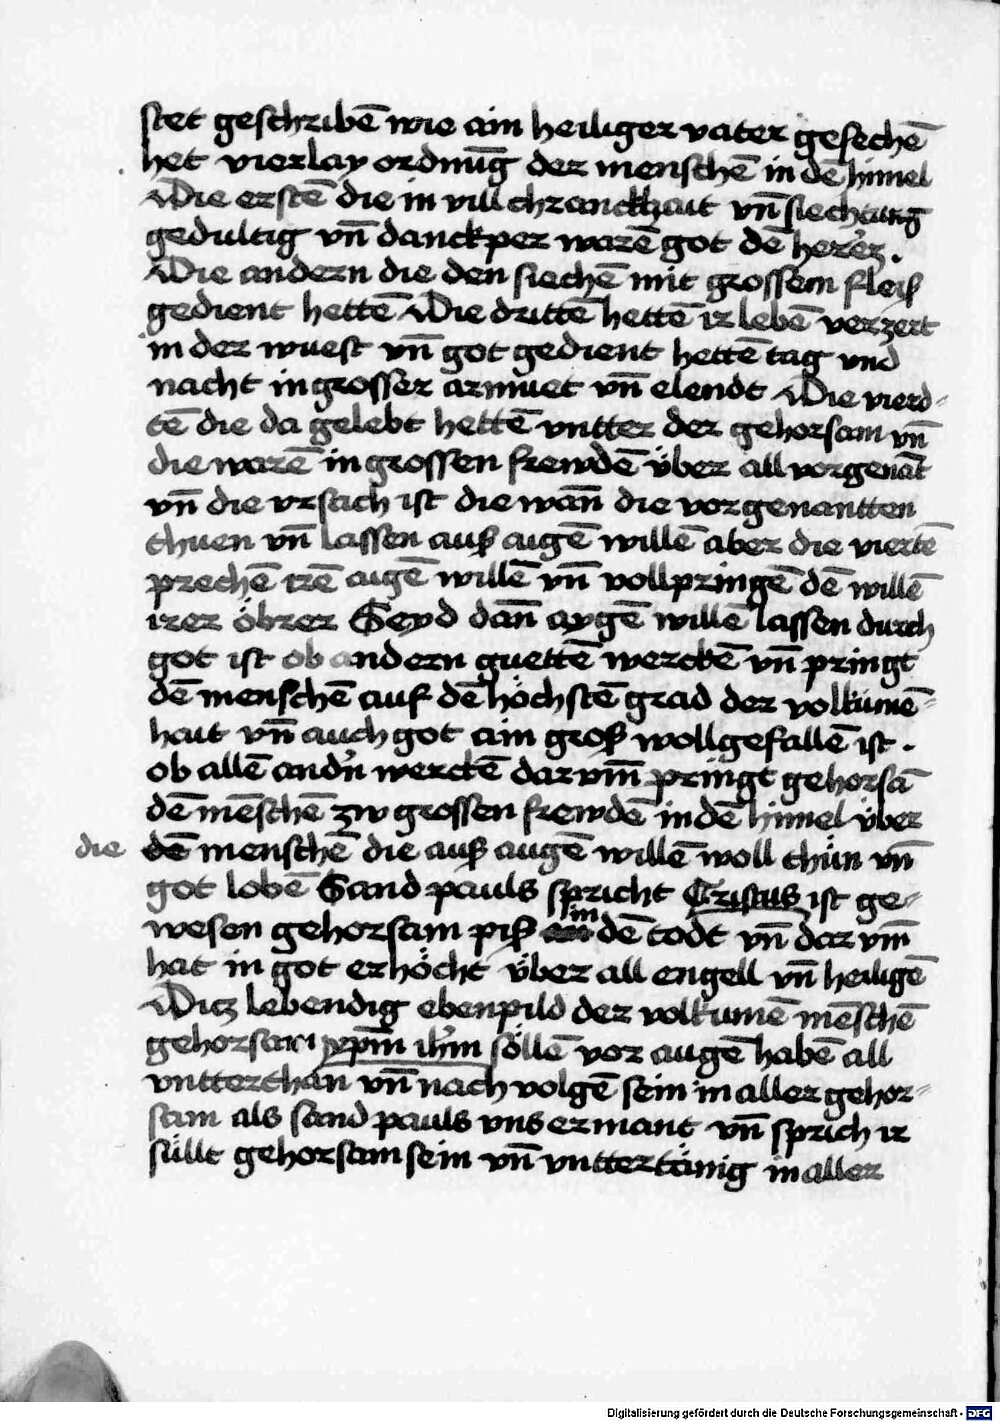 stet geschribē wie ain heiliger vater gesechē
het vierlay ordnūg der menschē in dē himel
Die erstē die in vill chranckhait vn̄ siechtung
gedultig vn̄ danckper warē got dē herrē.
Die andern die den siechē mit grossem fleiß
gedient hettē Die drittē hettē ir lebē verzert
in der wuest vn̄ got gedient hettē tag vnd
nacht in grosser armuet vn̄ elendt Die vierd-
tē die da gelebt hettē vntter der gehorsam vn̄
die warē in grossen frewdē über all vorgenāt
vn̄ die vrsach ist die wan̄ die vorgenantten
thuen vn̄ lassen auß aigē willē aber die viertē
prechē irē aigē willē vn̄ vollpringē dē willē
irer öbrer Seyd dan̄ aygē willē lassen durch
got ist ob andern guettē werckē vn̄ pringt
dē menschē auf dē höchstē grad der volkumē-
hait vn̄ auch got ain groß wollgefallē ist.
ob allē andn̄ werckē darvm̄ pringt gehorsā
dē mēschē zw grossen frewdē in dē himel über
die dē menschē die auß aigē willē woll thün vn̄
got lobē Sand pauls spricht Cristus ist ge-
wesen gehorsam piß in dē todt vn̄ darvm̄
hat in got erhöcht über all engell vn̄ heiligē
Ditz lebendig ebenpild der volkumē mēschē
gehorsam xpm̄ ihm̄ söllē vor augē habē all
vntterthan vn̄ nach volgē sein in aller gehor-
sam als sand pauls vns ermant vn̄ sprich ir
süllt gehorsam sein vn̄ vnttertänig in aller
Digitalisierung gefördert durch die Deutsche Forschungsgemeinschaft - DFG